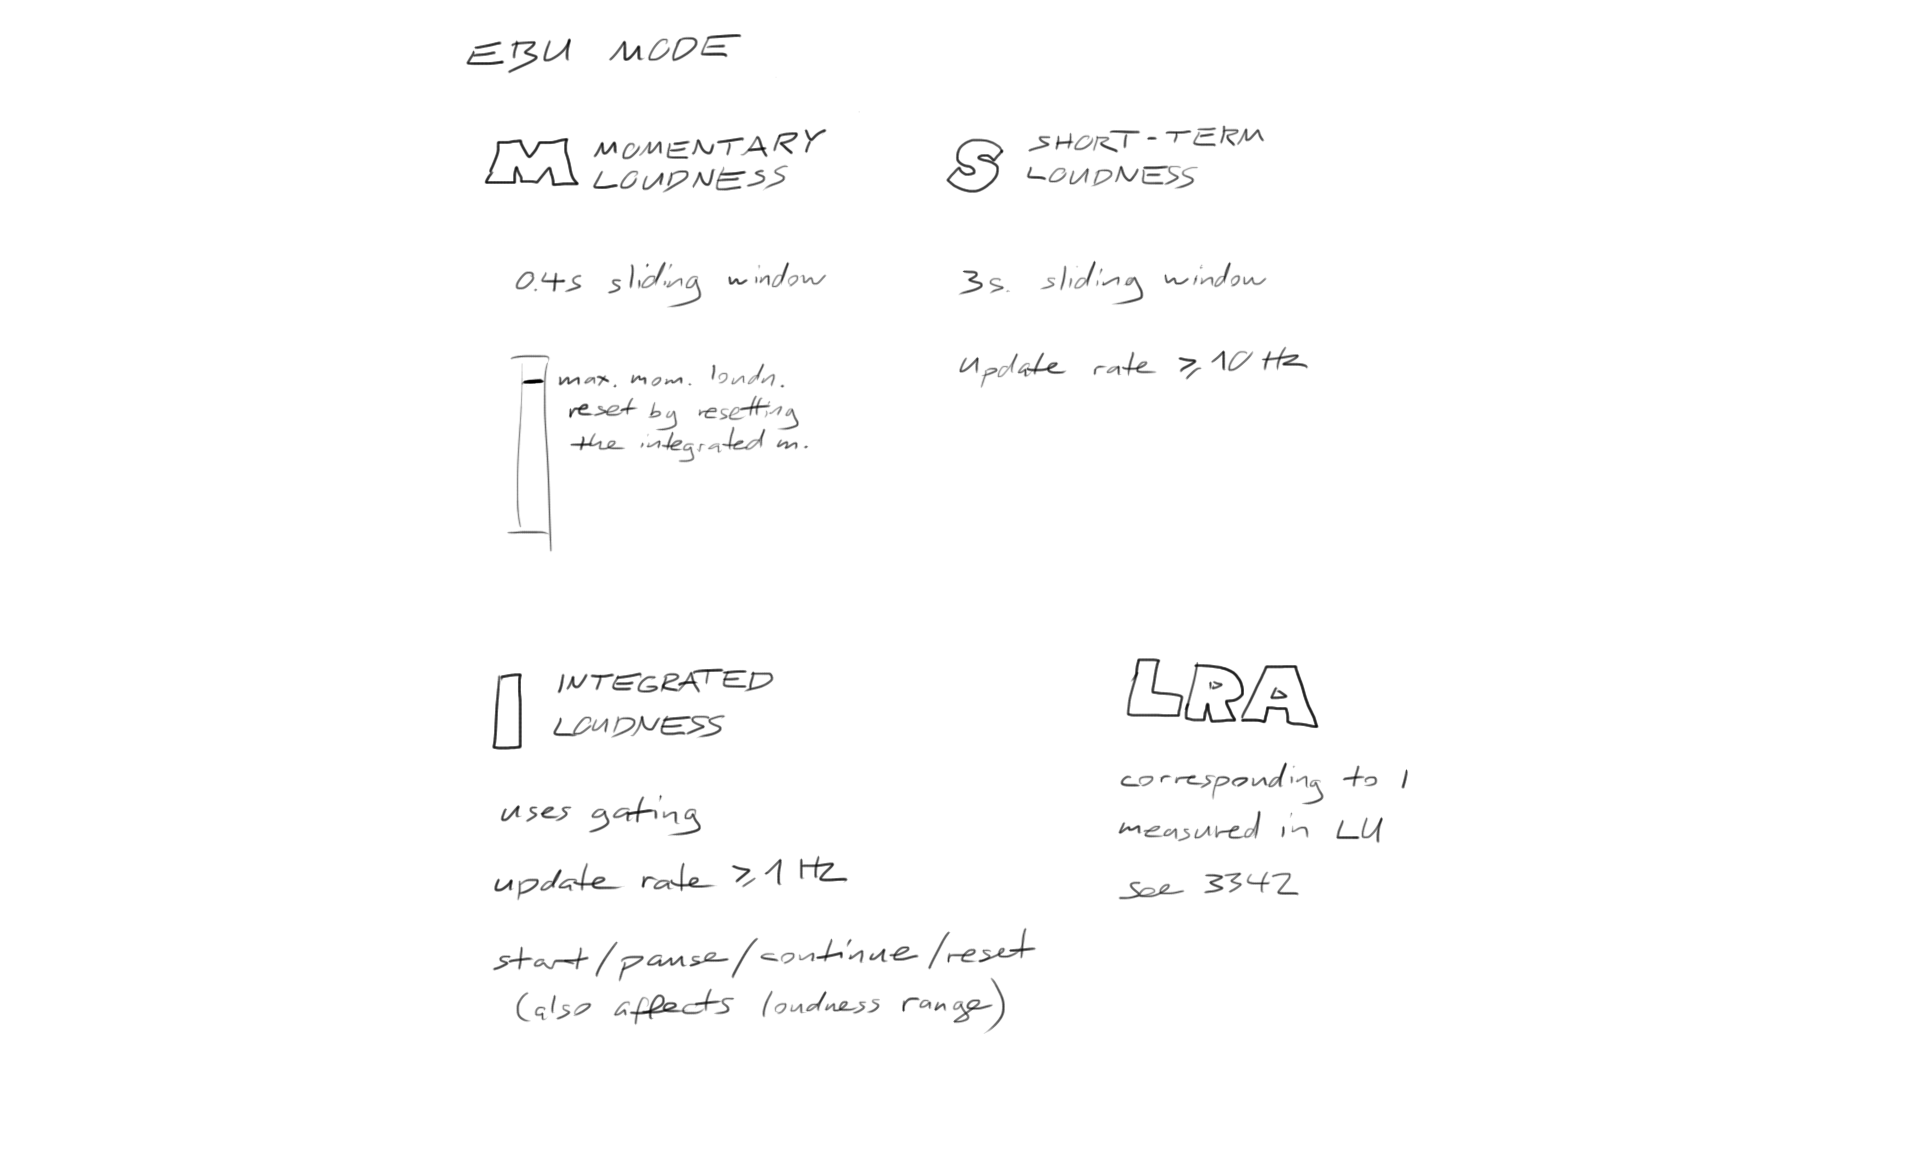 EBU MODE
M MOMENTARY
LOUDNESS
0.4s sliding window
max. mom. loudn.
reset by resetting
the integrated m.
S SHORT-TERM
LOUDNESS
3s. sliding window
update rate ⩾ 10 Hz
I INTEGRATED
LOUDNESS
uses gating
update rate ⩾ 1 Hz
start/pause/continue/reset
(also affects loudness range)
LRA
corresponding to I
measured in LU
see 3342